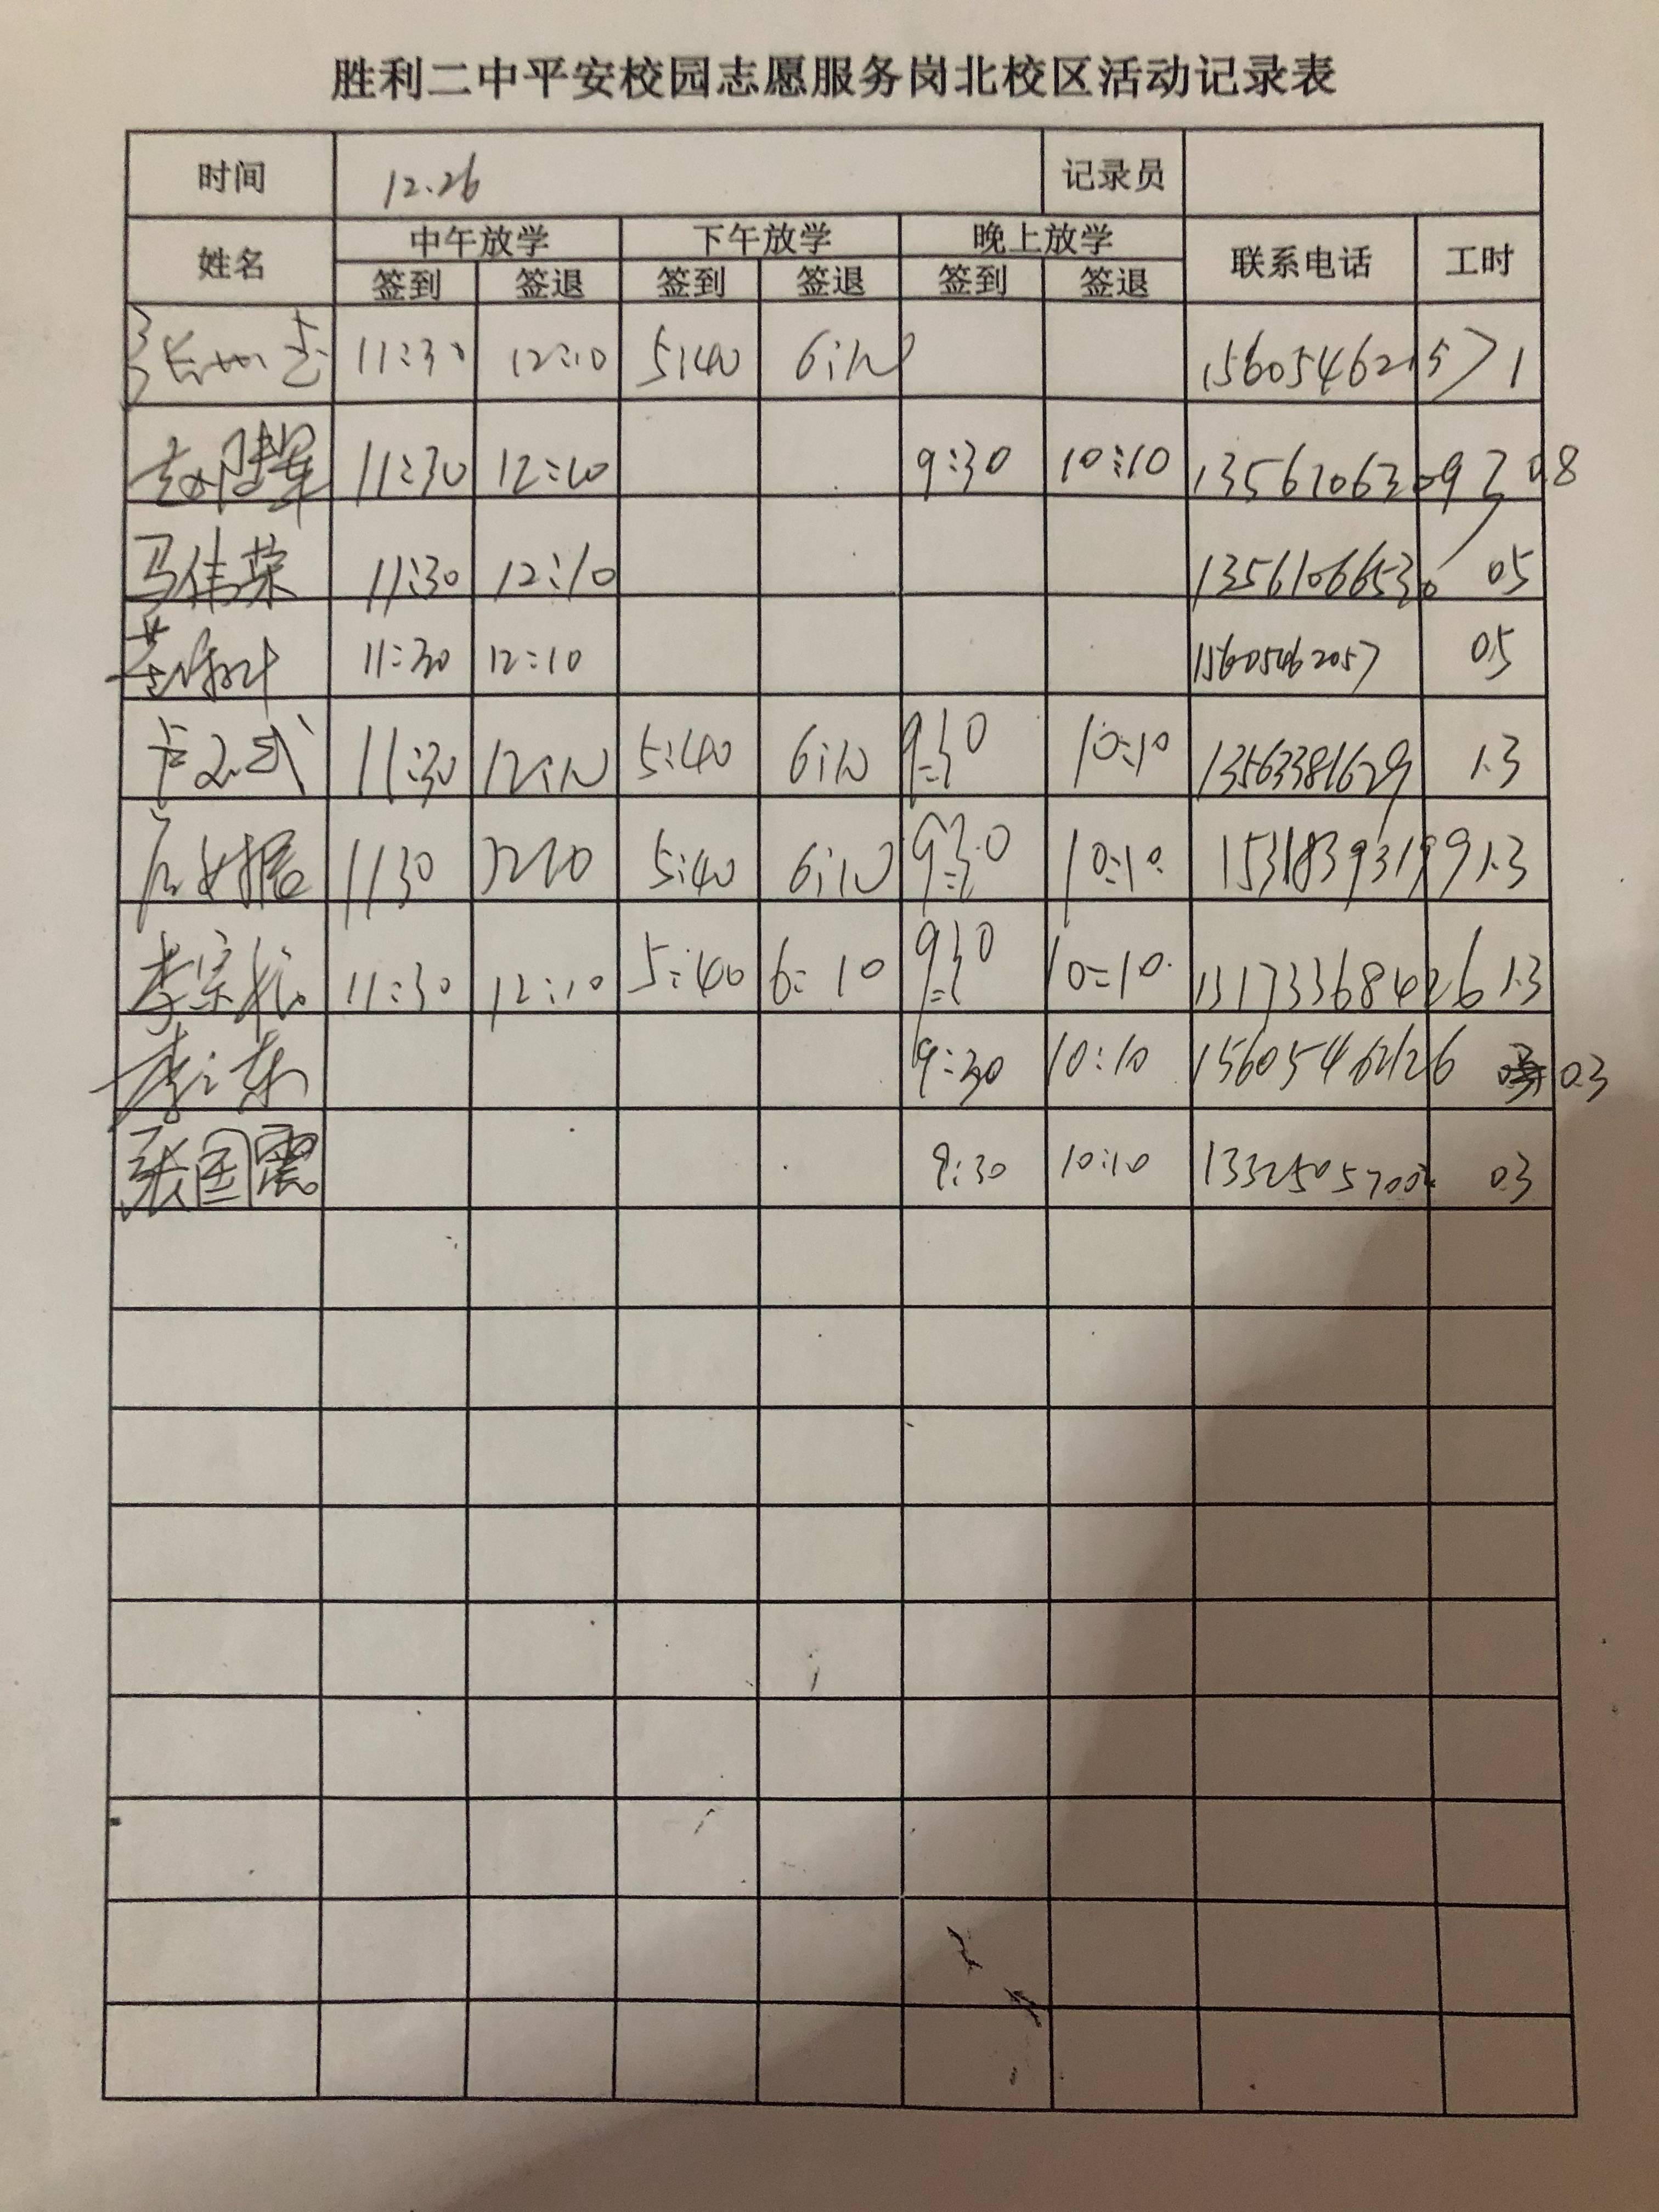 胜利二中平安校园志愿服务岗北校区活动记录表
时间 12.26 记录员
姓名 中午放学 下午放学 晚上放学 联系电话 工时
签到 签退 签到 签退 签到 签退
11:30 12:10 5:40 6:10 15605462157 1
11:30 12:10 9:30 10:10 13561063093 0.8
马伟荣 11:30 12:10 13561066530 05
11:30 12:10 15605462057 0.5
11:30 12:10 5:40 6:10 9:30 10:10 13563381629 1.3
1130 1210 5:40 6:10 9:30 10:10 15318393199 1.3
李宗 11:30 12:10 5:40 6:10 9:30 10:10 13173368426 1.3
李 东 9:30 10:10 15605462126 0.3
张国震 9:30 10:10 03